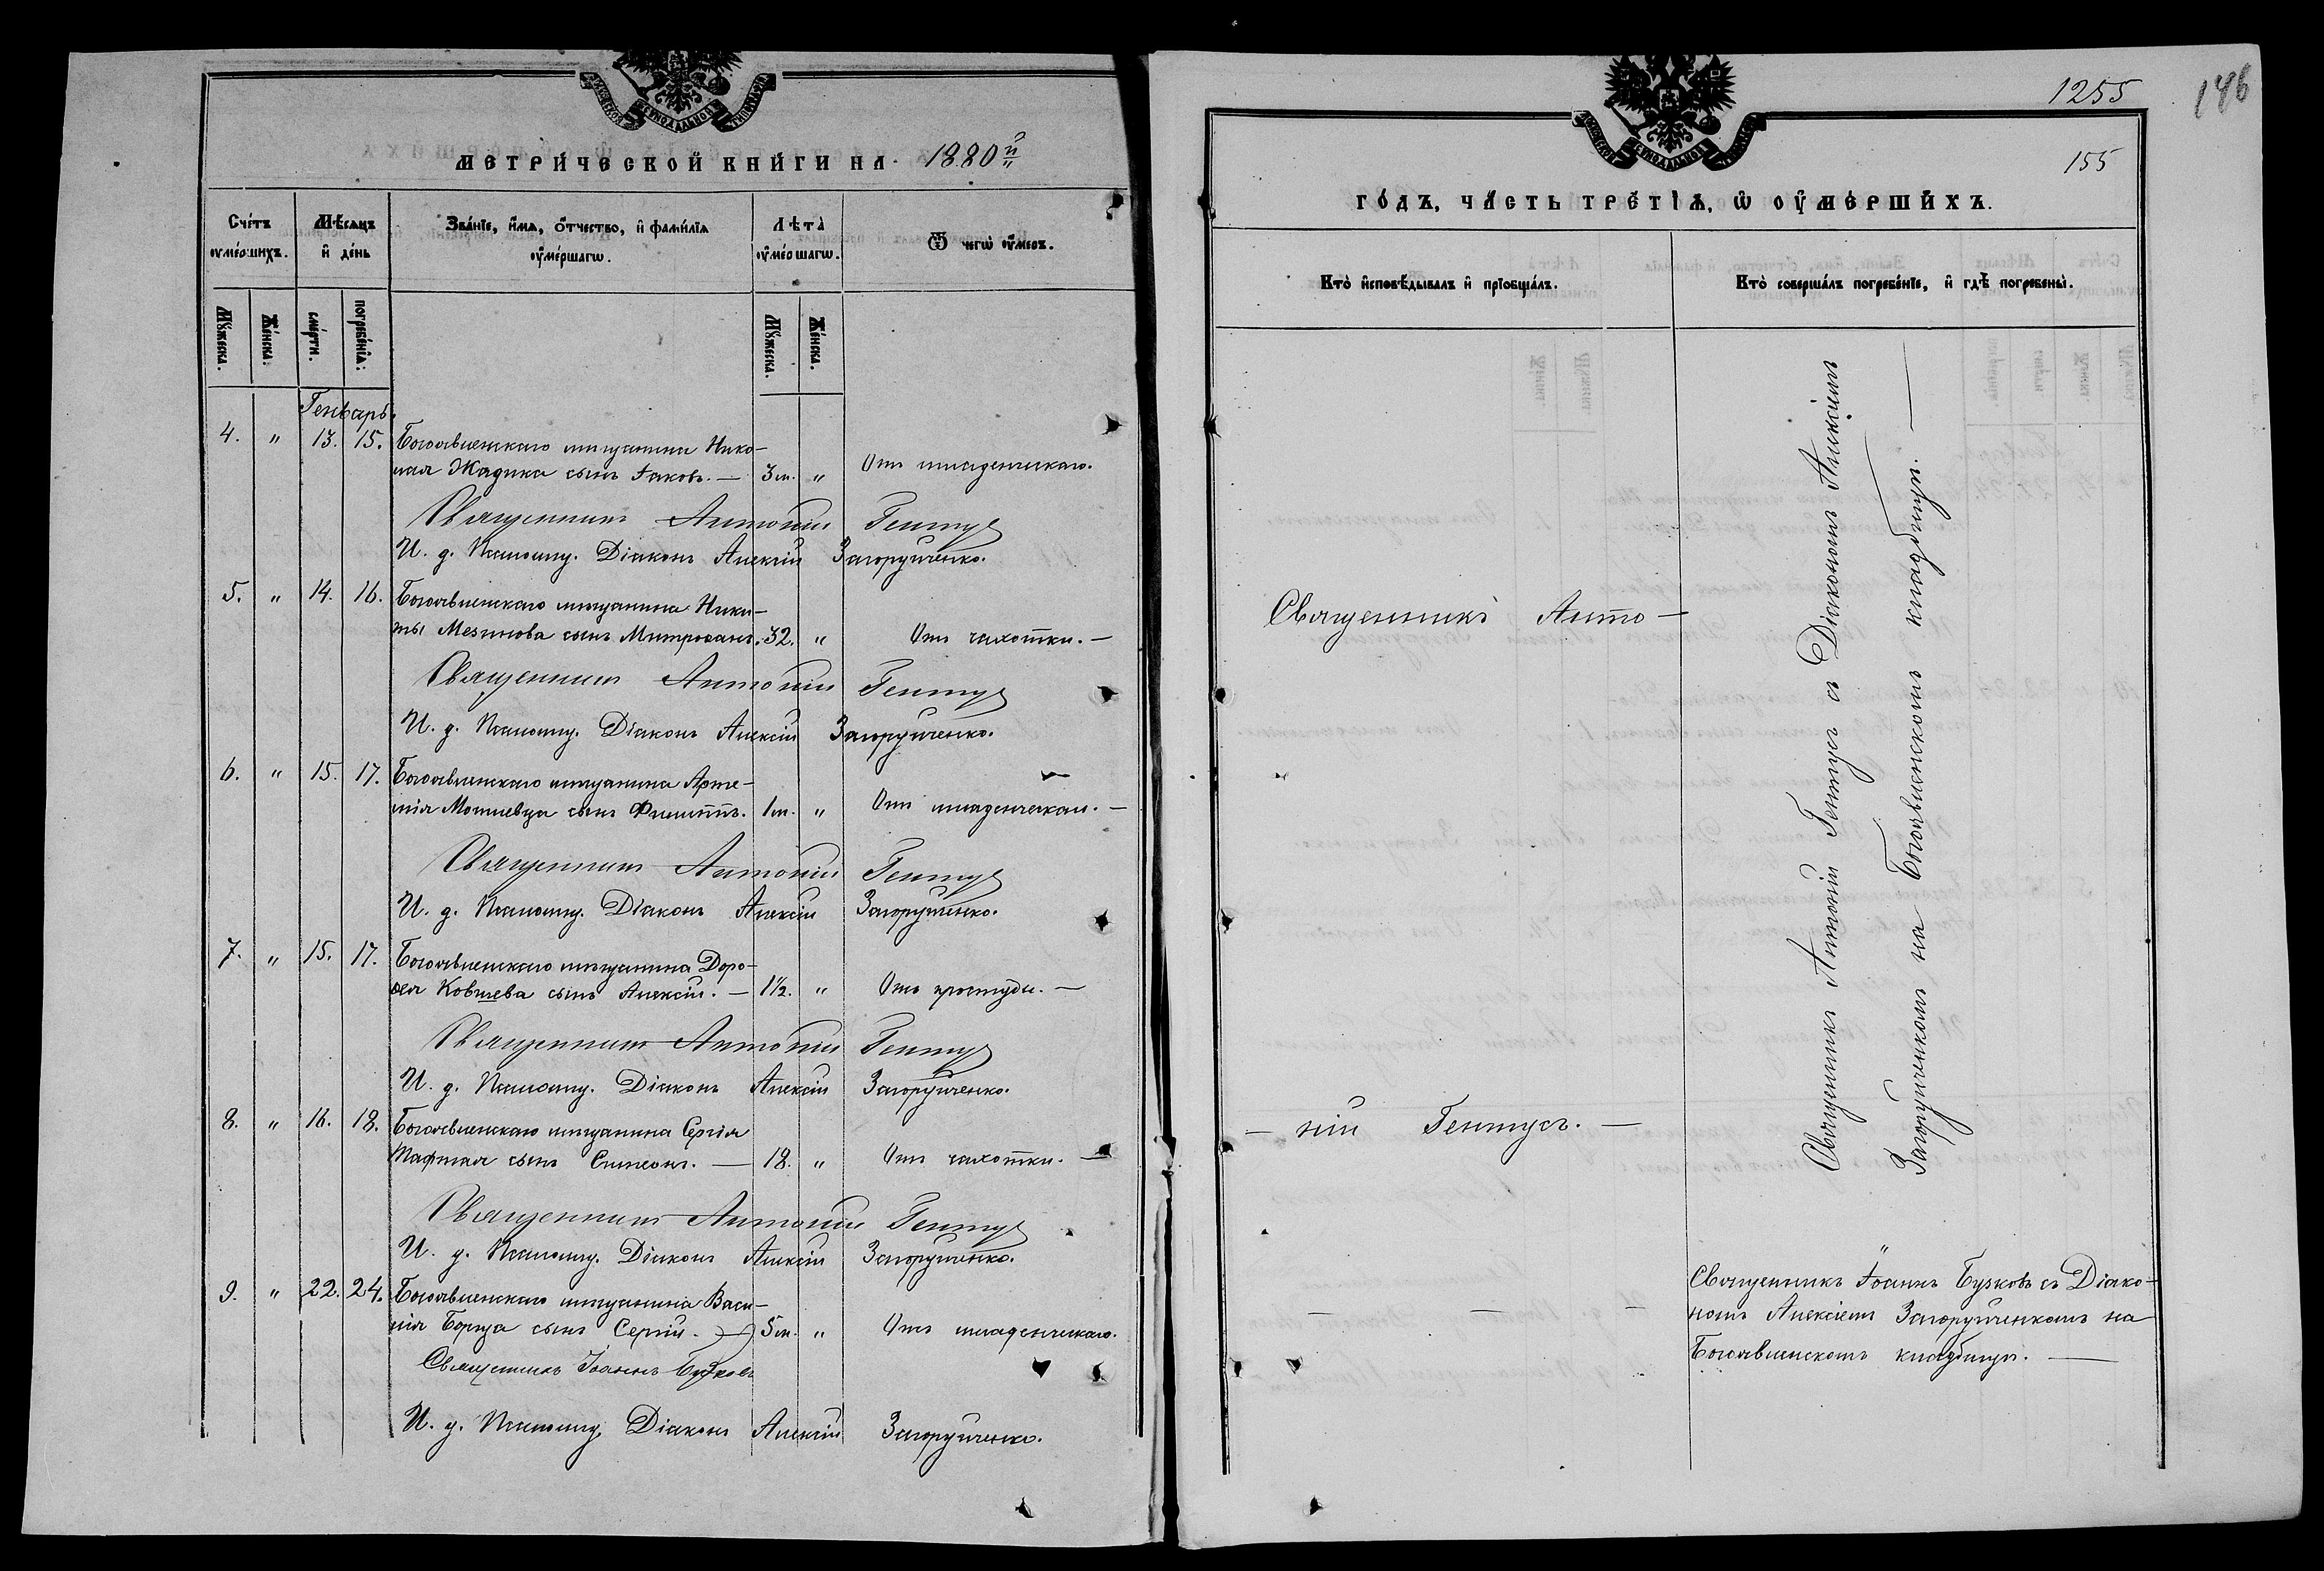 МЕТРИЧЕСКОЙ КНИГИ НА 1880й
Счетъ оумершихъ.
Мѣсяцъ и день
Званїе, имя, отчество, и фамилїя оумершагѡ.
Лѣта оумершагѡ.
Ѿ чегѡ оумеръ.
Мꙋжеска.
Женска.
смерти.
погребенїѧ.
Мꙋжеска.
Женска.
Генварь.
4. " 13. 15. Богоявленскаго мѣщанина Нико-
лая Жадика сынъ Іаковъ. — 3 м. " Отъ младенческаго.
Священникъ Антоній Гентус
И. д. Псаломщ. Діаконъ Алексій Загорулченко.
5. " 14. 16. Богоявленскаго мѣщанина Ники-
ты Мезинова сынъ Митрофанъ. 32. " Отъ чахотки. —
Священникъ Антоній Гентус
И. д. Псаломщ. Діаконъ Алексій Загорулченко.
6. " 15. 17. Богоявленскаго мѣщанина Арте-
мія сынъ Филиппъ. 1 м. " Отъ младенческаго. —
Священникъ Антоній Гентус
И. д. Псаломщ. Діаконъ Алексій Загорулченко.
7. " 15. 17. Богоявленскаго мѣщанина Доро-
ѳея Ковшева сынъ Алексій. — 1½. " Отъ простуды. —
Священникъ Антоній Гентус
И. д. Псаломщ. Діаконъ Алексій Загорулченко.
8. " 16. 18. Богоявленскаго мѣщанина Сергія
сынъ Симеонъ. — 18. " Отъ чахотки. —
Священникъ Антоній Гентус
И. д. Псаломщ. Діаконъ Алексій Загорулченко.
9. " 22. 24. Богоявленскаго мѣщанина Васи-
лія Борща сынъ Сергій. — 5 м. " Отъ младенческаго.
Священникъ Іоаннъ Бузковъ
И. д. Псаломщ. Діаконъ Алексій Загорулченко.
1255
146
155
ГОДЪ, ЧАСТЬ ТРЕТІѦ, Ѡ ОУМЕРШИХЪ.
Кто исповѣдывалъ и прїобщалъ.
Кто совершалъ погребенїе, и гдѣ погребены.
Священникъ Анто-
- ній Гентусъ. —
Священникъ Антоній Гентусъ съ Діакономъ Алексіемъ
Загорулченкомъ на Богоявленскомъ кладбищѣ. —
— — —
Священникъ Іоаннъ Бузковъ съ Діако-
номъ Алексіемъ Загорулченкомъ на
Богоявленскомъ кладбищѣ. —